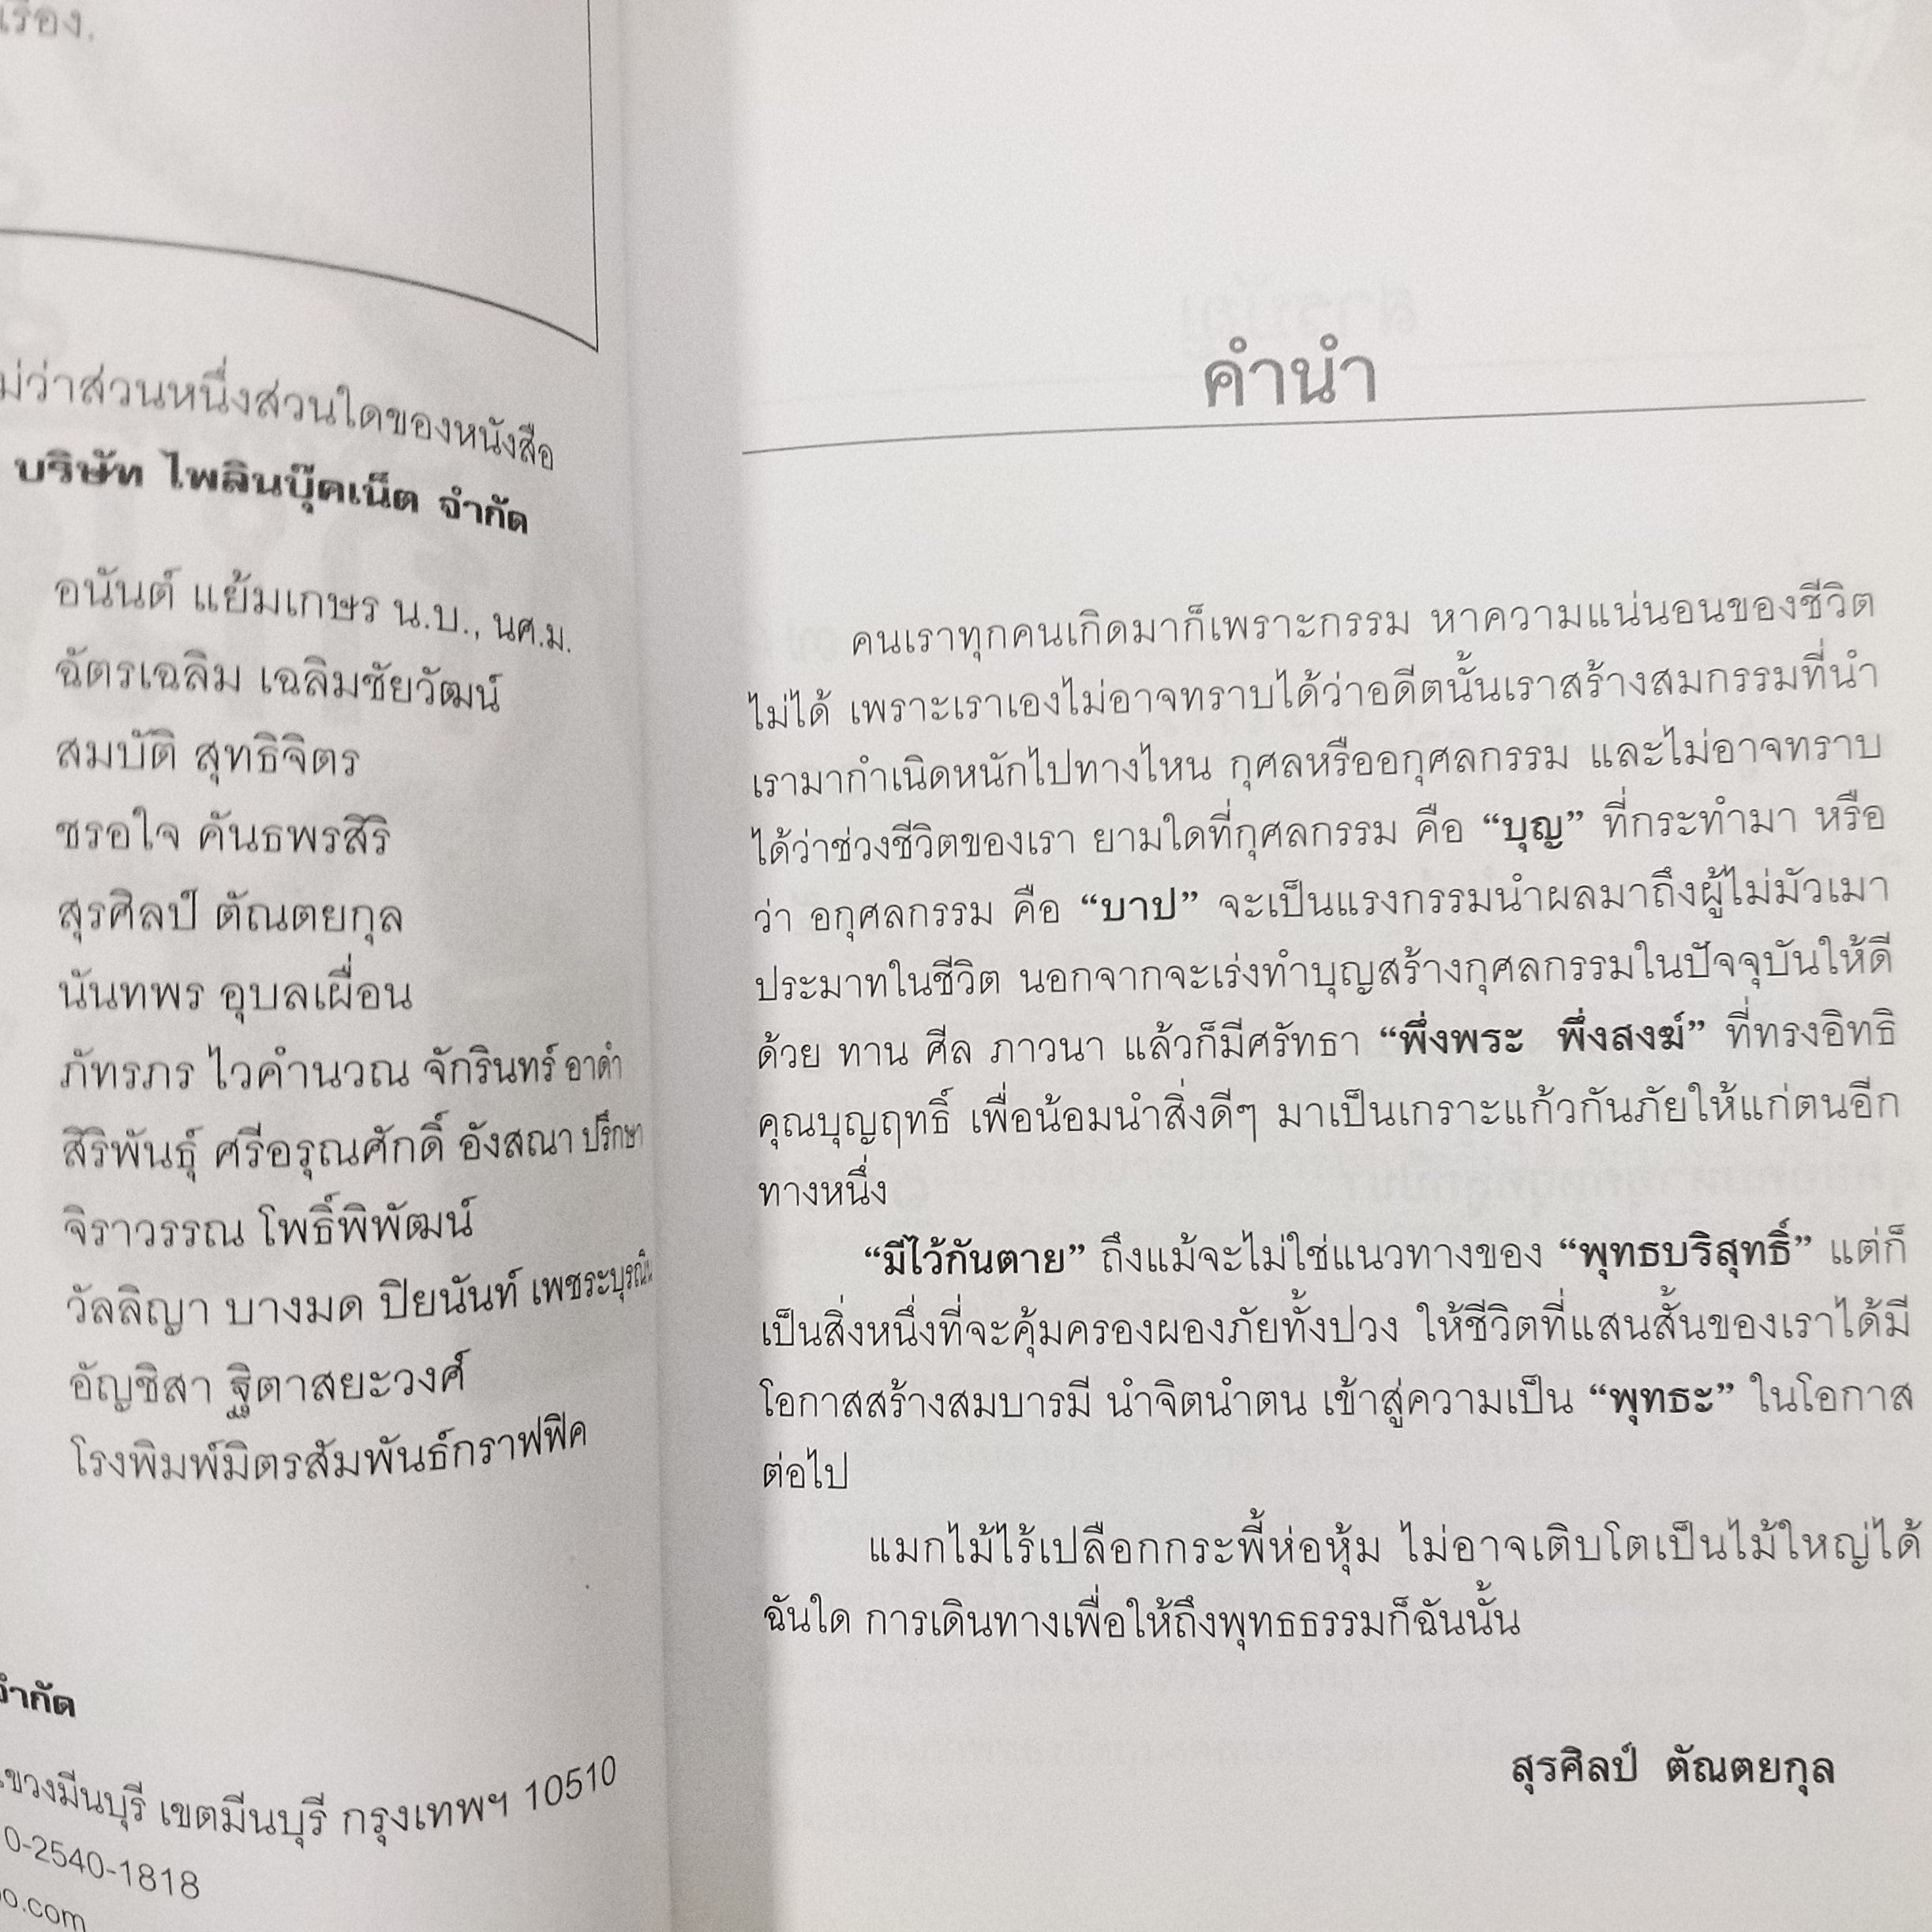 เรื่อง.
ม่ว่าส่วนหนึ่งส่วนใดของหนังสือ
บริษัท ไพลินบุ๊คเน็ต จำกัด
อนันต์ แย้มเกษร น.บ., นศ.ม.
ฉัตรเฉลิม เฉลิมชัยวัฒน์
สมบัติ สุทธิจิตร
ชรอใจ คันธพรสิริ
สุรศิลป์ ตัณตยกุล
นันทพร อุบลเผื่อน
ภัทรภร ไวคำนวณ จักรินทร์ อาดำ
สิริพันธุ์ ศรีอรุณศักดิ์ อังสณา ปรึกษา
จิราวรรณ โพธิ์พิพัฒน์
วัลลิญา บางมด ปิยนันท์
อัญชิสา ฐิตาสยะวงศ์
โรงพิมพ์มิตรสัมพันธ์กราฟฟิค
จำกัด
แขวงมีนบุรี เขตมีนบุรี กรุงเทพฯ 10510
0-2540-1818
o.com
คำนำ
คนเราทุกคนเกิดมาก็เพราะกรรม หาความแน่นอนของชีวิต
ไม่ได้ เพราะเราเองไม่อาจทราบได้ว่าอดีตนั้นเราสร้างสมกรรมที่นำ
เรามากำเนิดหนักไปทางไหน กุศลหรืออกุศลกรรม และไม่อาจทราบ
ได้ว่าช่วงชีวิตของเรา ยามใดที่กุศลกรรม คือ “บุญ” ที่กระทำมา หรือ
ว่า อกุศลกรรม คือ “บาป” จะเป็นแรงกรรมนำผลมาถึงผู้ไม่มัวเมา
ประมาทในชีวิต นอกจากจะเร่งทำบุญสร้างกุศลกรรมในปัจจุบันให้ดี
ด้วย ทาน ศีล ภาวนา แล้วก็มีศรัทธา “พึ่งพระ พึ่งสงฆ์” ที่ทรงอิทธิ
คุณบุญฤทธิ์ เพื่อน้อมนำสิ่งดีๆ มาเป็นเกราะแก้วกันภัยให้แก่ตนอีก
ทางหนึ่ง
“มีไว้กันตาย” ถึงแม้จะไม่ใช่แนวทางของ “พุทธบริสุทธิ์” แต่ก็
เป็นสิ่งหนึ่งที่จะคุ้มครองผองภัยทั้งปวง ให้ชีวิตที่แสนสั้นของเราได้มี
โอกาสสร้างสมบารมี นำจิตนำตน เข้าสู่ความเป็น “พุทธะ” ในโอกาส
ต่อไป
แมกไม้ไร้เปลือกกระพี้ห่อหุ้ม ไม่อาจเติบโตเป็นไม้ใหญ่ได้
ฉันใด การเดินทางเพื่อให้ถึงพุทธธรรมก็ฉันนั้น
สุรศิลป์ ตัณตยกุล